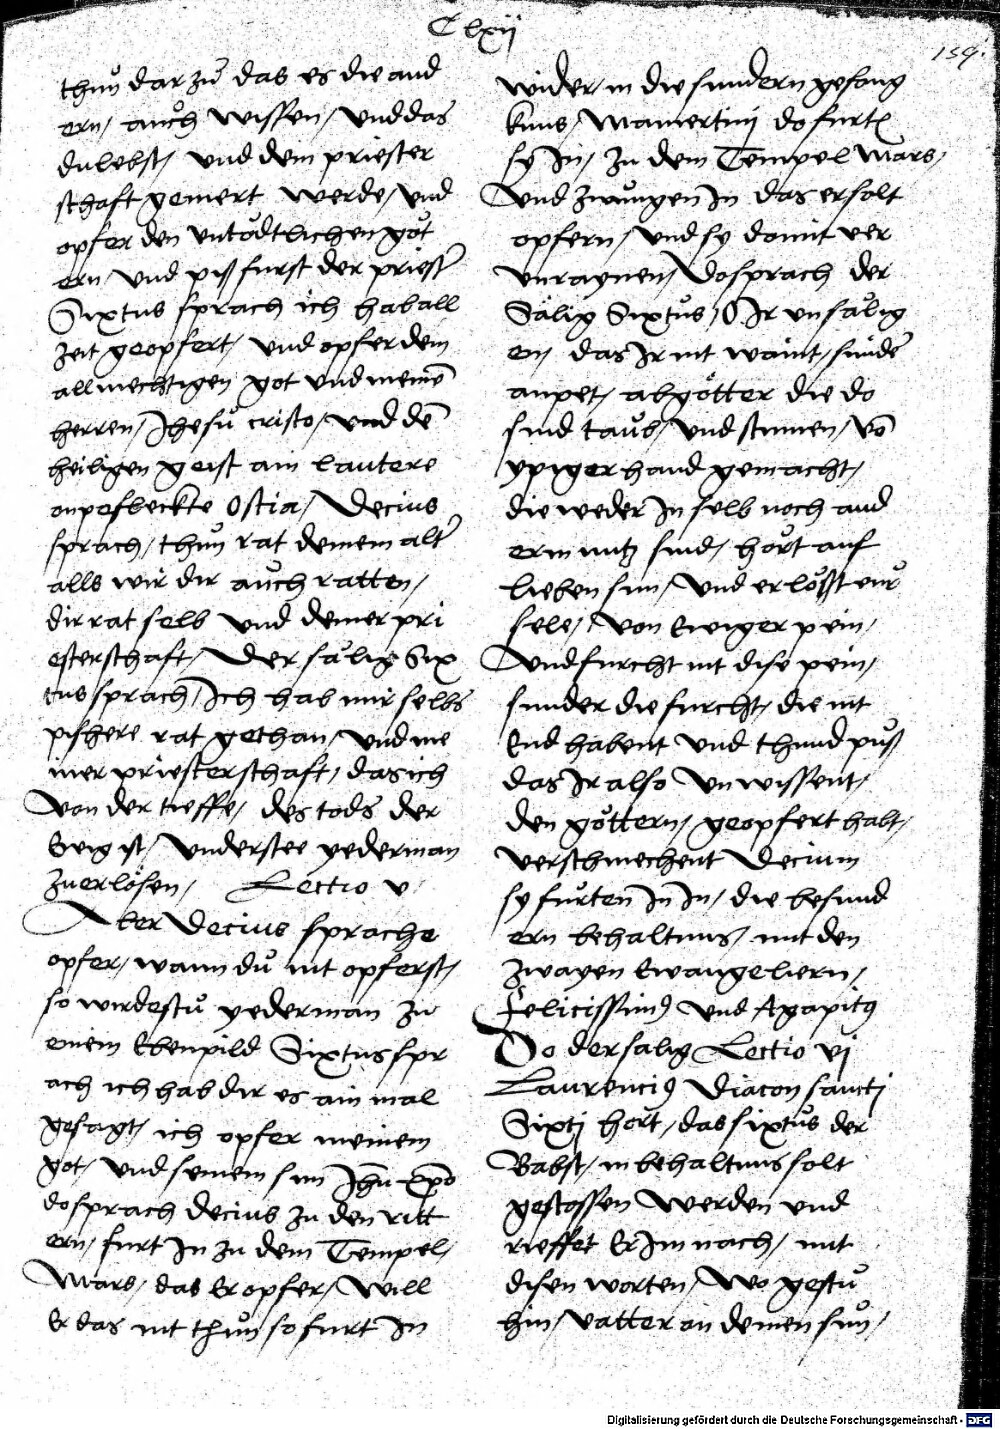 Clxij
159.
thuͦn dar zuͦ das es die and
ern / auch wissen / und das
du lebst / und dein priester
schaft gemert werde / und
opfer den untödtlichen göt
ern / und piß furst der priest
Sixtus sprach ich hab all
zeit geopfert / und opfer dem
allmechtigen got und meinē
herren / Jhesu cristo / und dē
heiligen geist ain lautere
onpefleckte Ostia / Decius
sprach / thun rat deinem alt
alls wir dir auch ratten /
dir rat selb und deiner pri
esterschaft / Der sälig Six
tus sprach / Ich hab mir selbs
pishere rat gethan / und me
iner priesterschaft / das ich
von der tieffe / des tods der
Ewig ist / understee yederman
zuerlösen / Lectio v
Aber Decius sprache
opfer / wann du nit opferst /
so wirdestu yederman zu
einem Ebenpild Sixtus spr
ach ich hab dir es ain mal
gesagt / ich opfer meinem
got / und seinem sun Jhu Xpō
do sprach decius zu den ritt
ern / furt In zu dem Tempel /
Mars / das Er opfer / Will
Er das nit thun / so furt In
wider / in die sundern gefong
knus / Mamertini do furt
sy In / zu dem Tempel Mars /
und zwungen In das er solt
opfern / und sy domit ver
unraynen / Do sprach der
Sälig Sixtus / O Ir unsälig
en / das Ir nit waint / sunder
anpet / abgötter die do
sind taub / und stumen / vō
ypiger hand gemacht /
die weder In selb noch and
ern nutz sind / hört auf
lieben sun / und erlößt eur
sele / von Ewiger pein /
und furcht nit dise pein /
sunder die furcht / die nit
End habent und thund puß
das Ir also unwissent /
den göttern / geopfert habt /
verschmechent Decium
sy furten In In / die besund
ern behaltnus / mit den
zwayen Ewangeliern /
Felicissimꝰ und Agapitꝰ
Do der salig Lectio vj
Laurenciꝰ Diacon sancti
Sixti hort / das sixtus der
Babst / in behaltnus solt
gestossen werden und
rieffet Er Im nach / mit
disen worten / Wo gestu
hin / vatter an deinen sun /
Digitalisierung gefördert durch die Deutsche Forschungsgemeinschaft - DFG